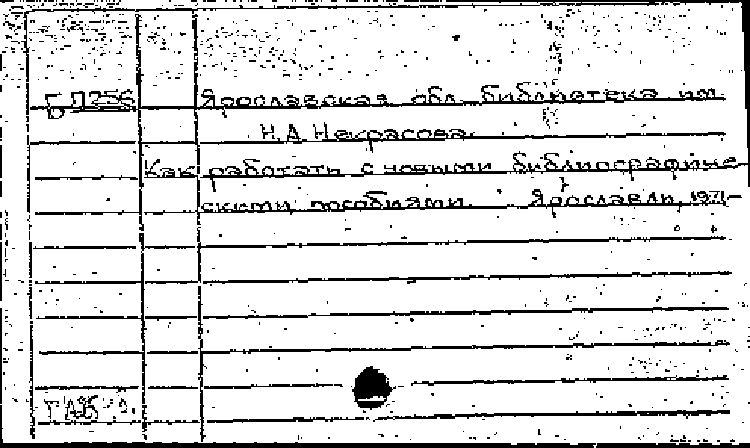 Б П256 Ярославская обл. библиотека им.
Н.А. Некрасова.
Как работать с новыми библиографиче-
скими пособиями. Ярославль, 1971-